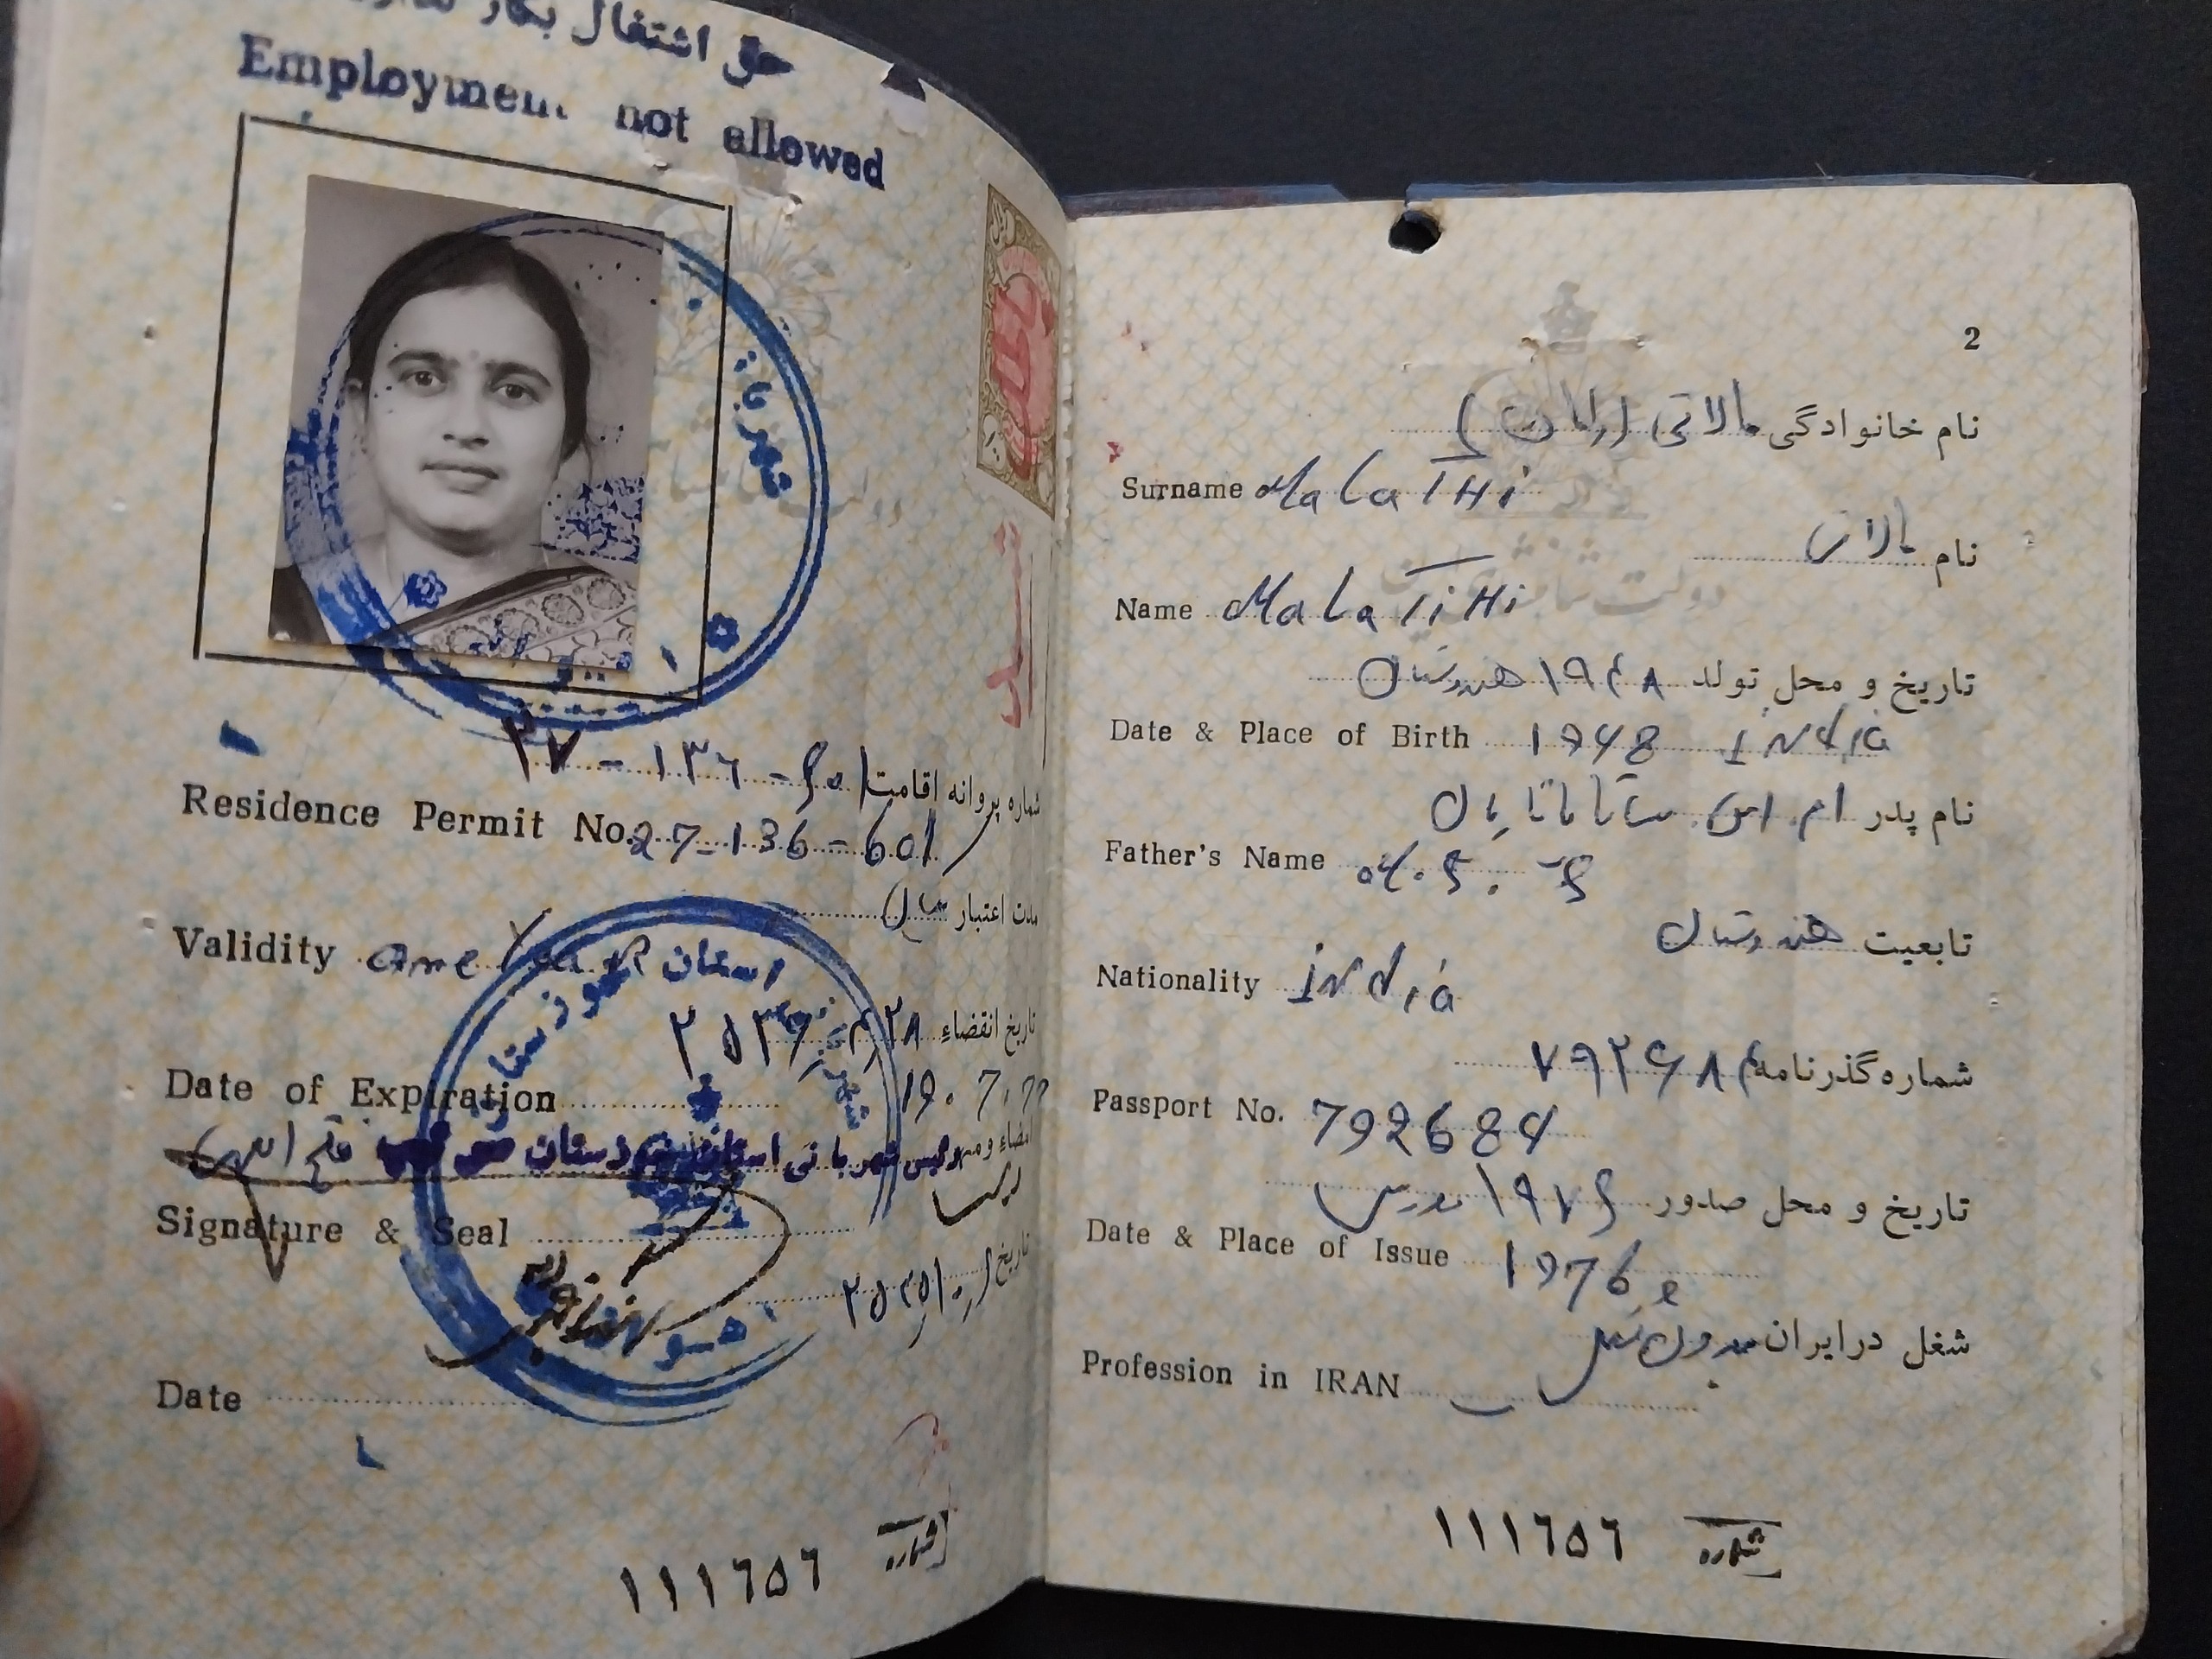 حق اشتغال بکار ندارد
Employment not allowed
۲۷ - ۱۳۶ - ۶۰۱ شماره پروانه اقامت
Residence Permit No. 27-136-601
مدت اعتبار
Validity one Year
تاریخ انقضاء
Date of Expiration 19.7.77
امضاء و مهر
رئیس شهربانی استان خوزستان
Signature & Seal
تاریخ
Date
شهربانی
استان خوزستان
شماره ۱۱۱۶۵۶
2
نام خانوادگی مالاتی (رامان)
Surname MalaTHi
نام
Name MalaTiHi
تاریخ و محل تولد ۱۹۴۸ هندوستان
Date & Place of Birth 1948 India
نام پدر ام. اس.
Father's Name
تابعیت هندوستان
Nationality India
شماره گذرنامه ۷۹۲۶۸۴
Passport No. 792684
تاریخ و محل صدور ۱۹۷۶ مدرس
Date & Place of Issue 1976
شغل در ایران بدون شغل
Profession in IRAN
دولت شاهنشاهی
شماره ۱۱۱۶۵۶